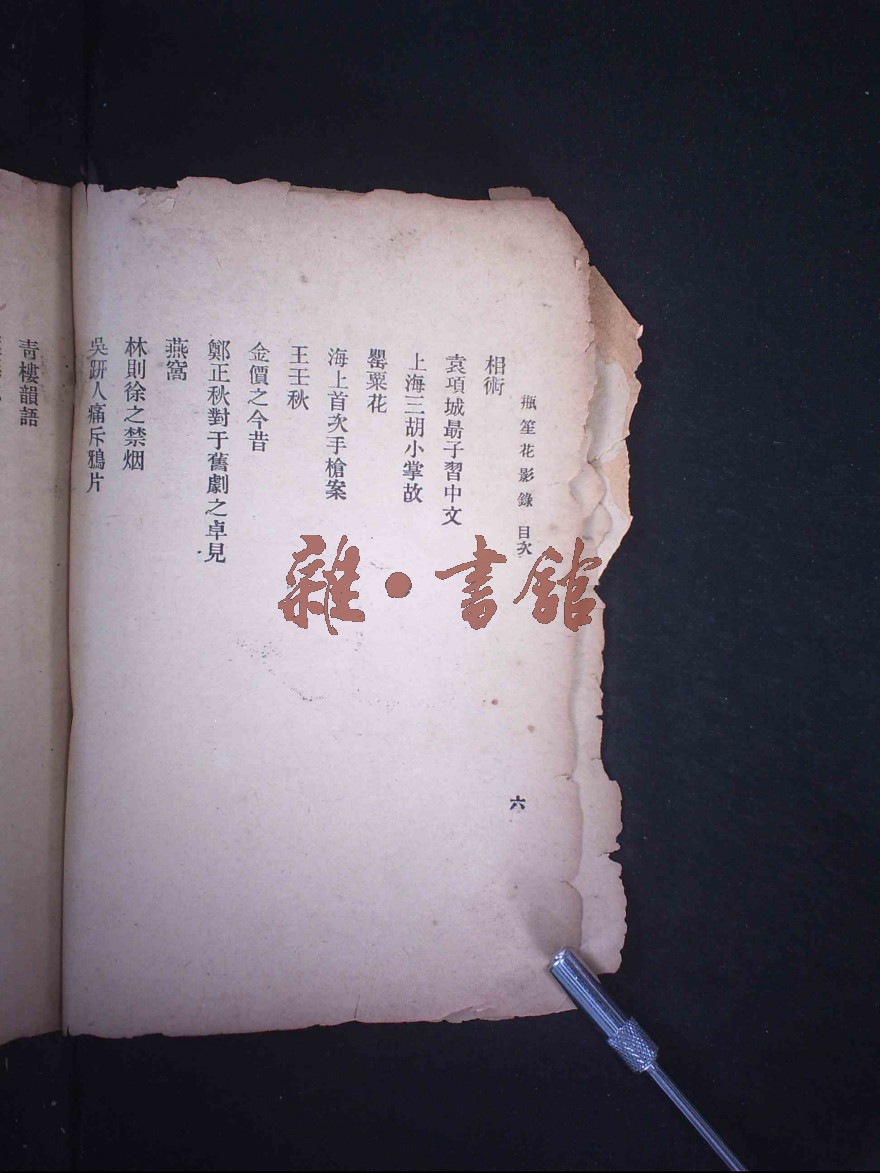 瓶笙花影錄 目次
六
相術
袁項城勗子習中文
上海三胡小掌故
罌粟花
海上首次手槍案
王壬秋
金價之今昔
鄭正秋對于舊劇之卓見
燕窩
林則徐之禁烟
吳趼人痛斥鴉片
青樓韻語
雜·書館